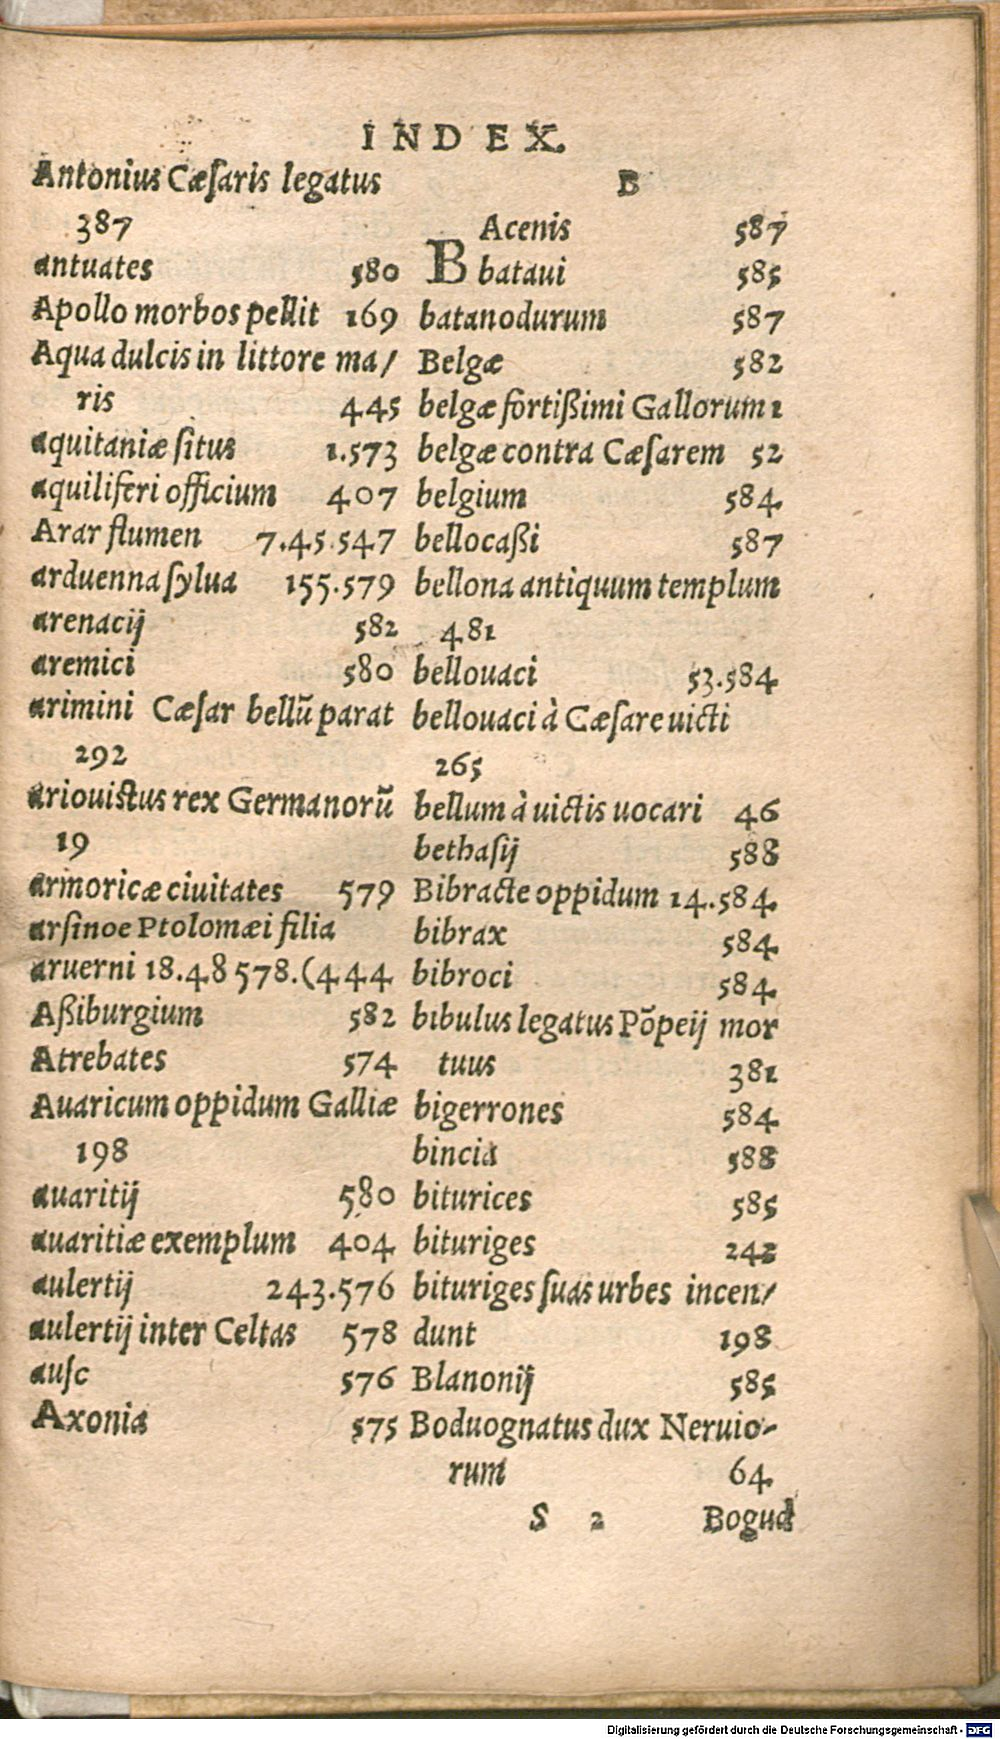 INDEX.
Antonius Cæſaris legatus
387
antuates 580
Apollo morbos pellit 169
Aqua dulcis in littore ma/
ris 445
aquitaniæ ſitus 1.573
aquiliferi officium 407
Arar flumen 7.45.547
arduenna ſylua 155.579
arenacij 582
aremici 580
arimini Cæſar bellū parat
292
ariouiſtus rex Germanorū
19
armoricæ ciuitates 579
arſinoe Ptolomæi filia
aruerni 18.48 578.(444
Aßiburgium 582
Atrebates 574
Auaricum oppidum Galliæ
198
auaritij 580
auaritiæ exemplum 404
aulertij 243.576
aulertij inter Celtas 578
auſc 576
Axonia 575
B
BAcenis 587
bataui 585
batanodurum 587
Belgæ 582
belgæ fortißimi Gallorum 1
belgæ contra Cæſarem 52
belgium 584
bellocaßi 587
bellona antiquum templum
481
bellouaci 53.584
bellouaci à Cæſare uicti
265
bellum à uictis uocari 46
bethaſij 588
Bibracte oppidum 14.584
bibrax 584
bibroci 584
bibulus legatus Pōpeij mor
tuus 381
bigerrones 584
bincia 588
biturices 585
bituriges 242
bituriges ſuas urbes incen/
dunt 198
Blanonij 585
Boduognatus dux Neruio-
rum 64
S 2 Bogud
Digitalisierung gefördert durch die Deutsche Forschungsgemeinschaft - DFG